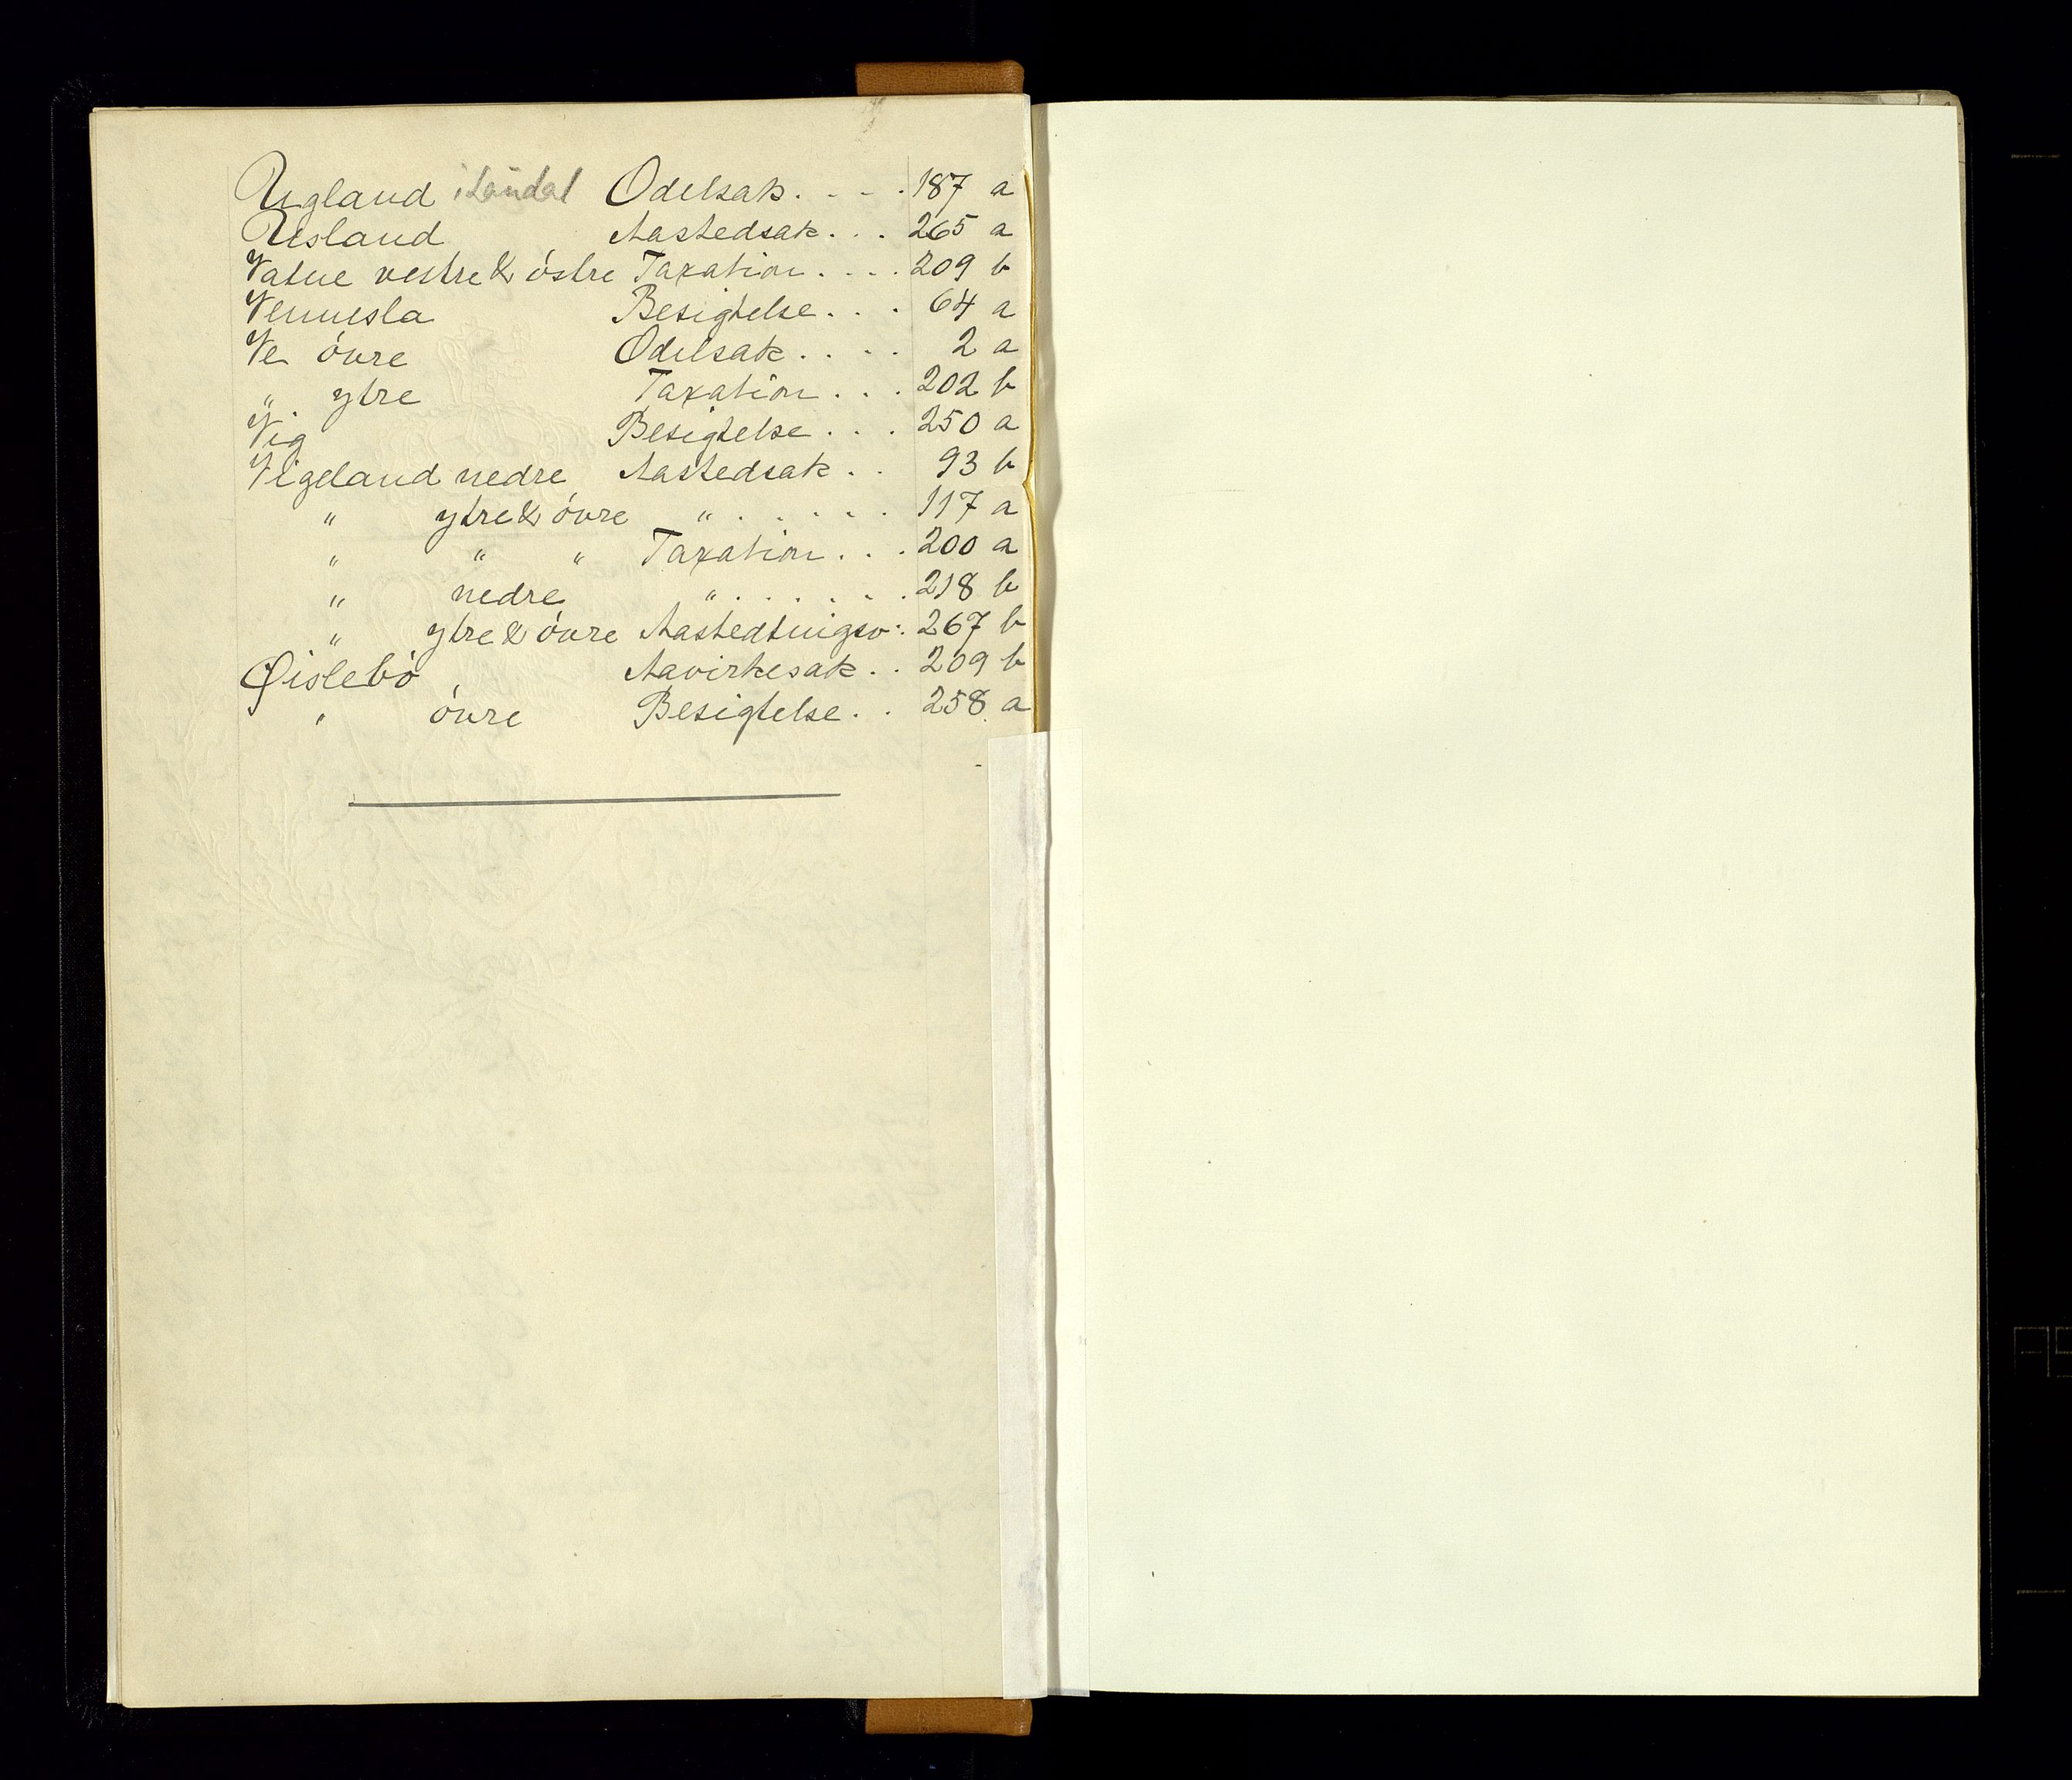 Ugland i Laudal Odelsak. - - . 187 a
Usland Aastedsak. . . 265 a
Vatne vestre & östre Taxation. . . . 209 b
Vennesla Besigtelse. . . 64 a
Ve övre Odelsak. . . . 2 a
" ytre Taxation. . . 202 b
Vig Besigtelse. . . 250 a
Vigeland nedre Aastedsak. . 93 b
" ytre & övre " . . . . . . 117 a
" " " Taxation. . . 200 a
" nedre " . . . . . . 218 b
" ytre & övre 267 b
Øislebö Aavirkesak. . 209 b
" övre Besigtelse. . 258 a